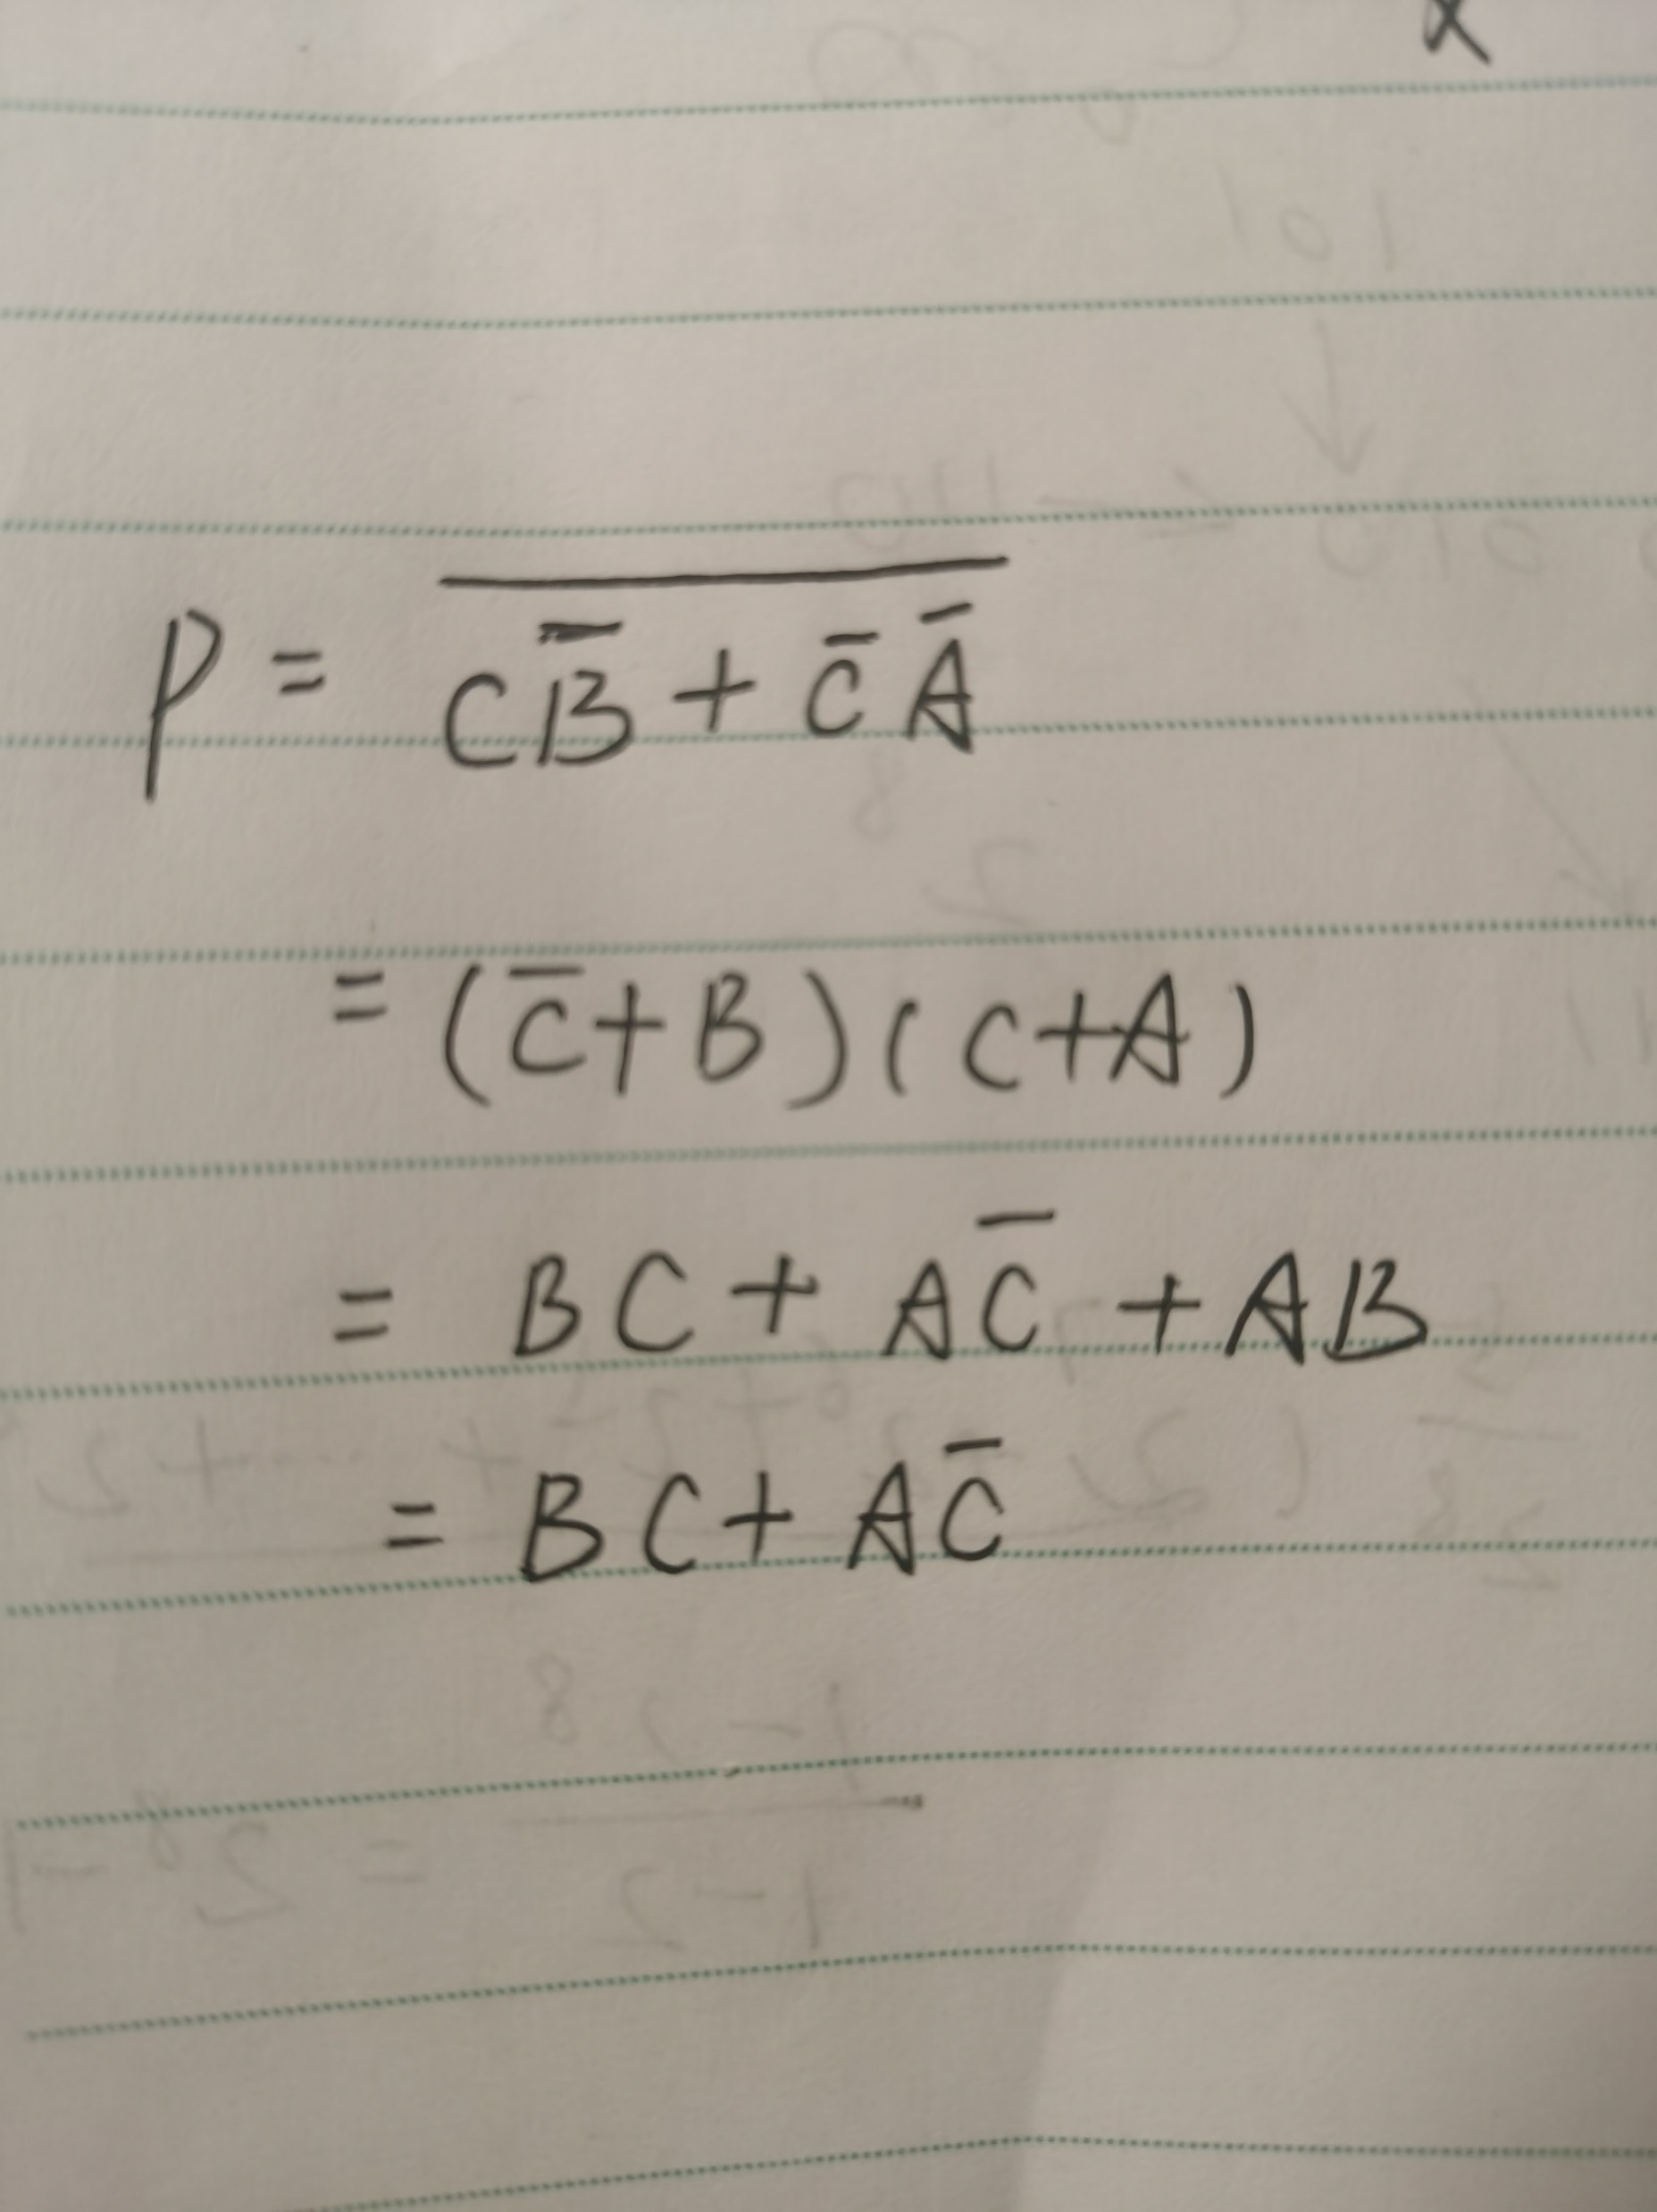 P = \overline{C\overline{B} + \overline{C}\,\overline{A}}
= (\overline{C}+B)(C+A)
= BC + A\overline{C} + AB
= BC + A\overline{C}